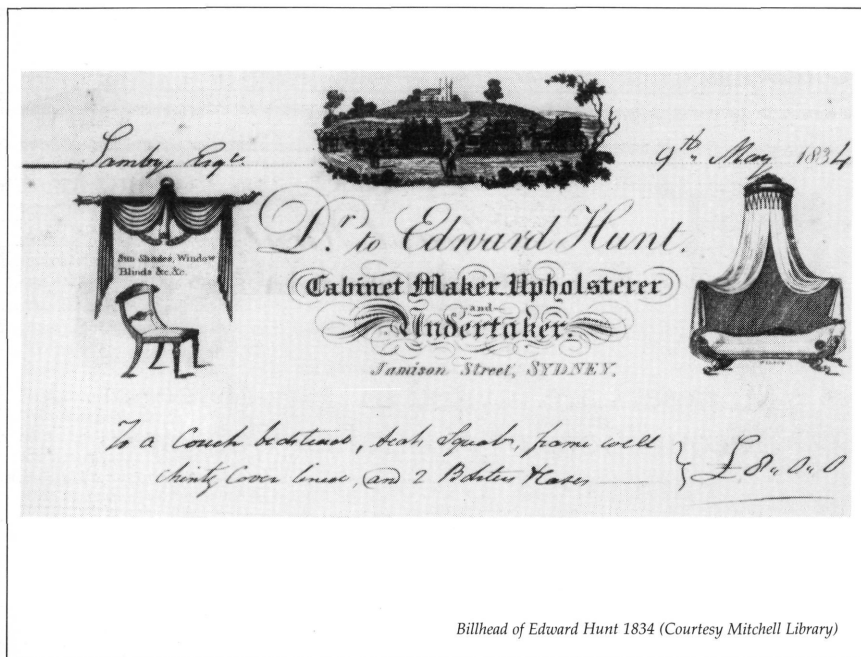 Esqr.
9th May 1834
Sun Shades, Window
Blinds &c. &c.
Dr. to Edward Hunt.
Cabinet Maker. Upholsterer
and
Undertaker.
Jamison Street, SYDNEY.
To a Couch bedstead, Squab, frame well
chintz Cover lined, and 2 Bolsters £8„0„0
Billhead of Edward Hunt 1834 (Courtesy Mitchell Library)